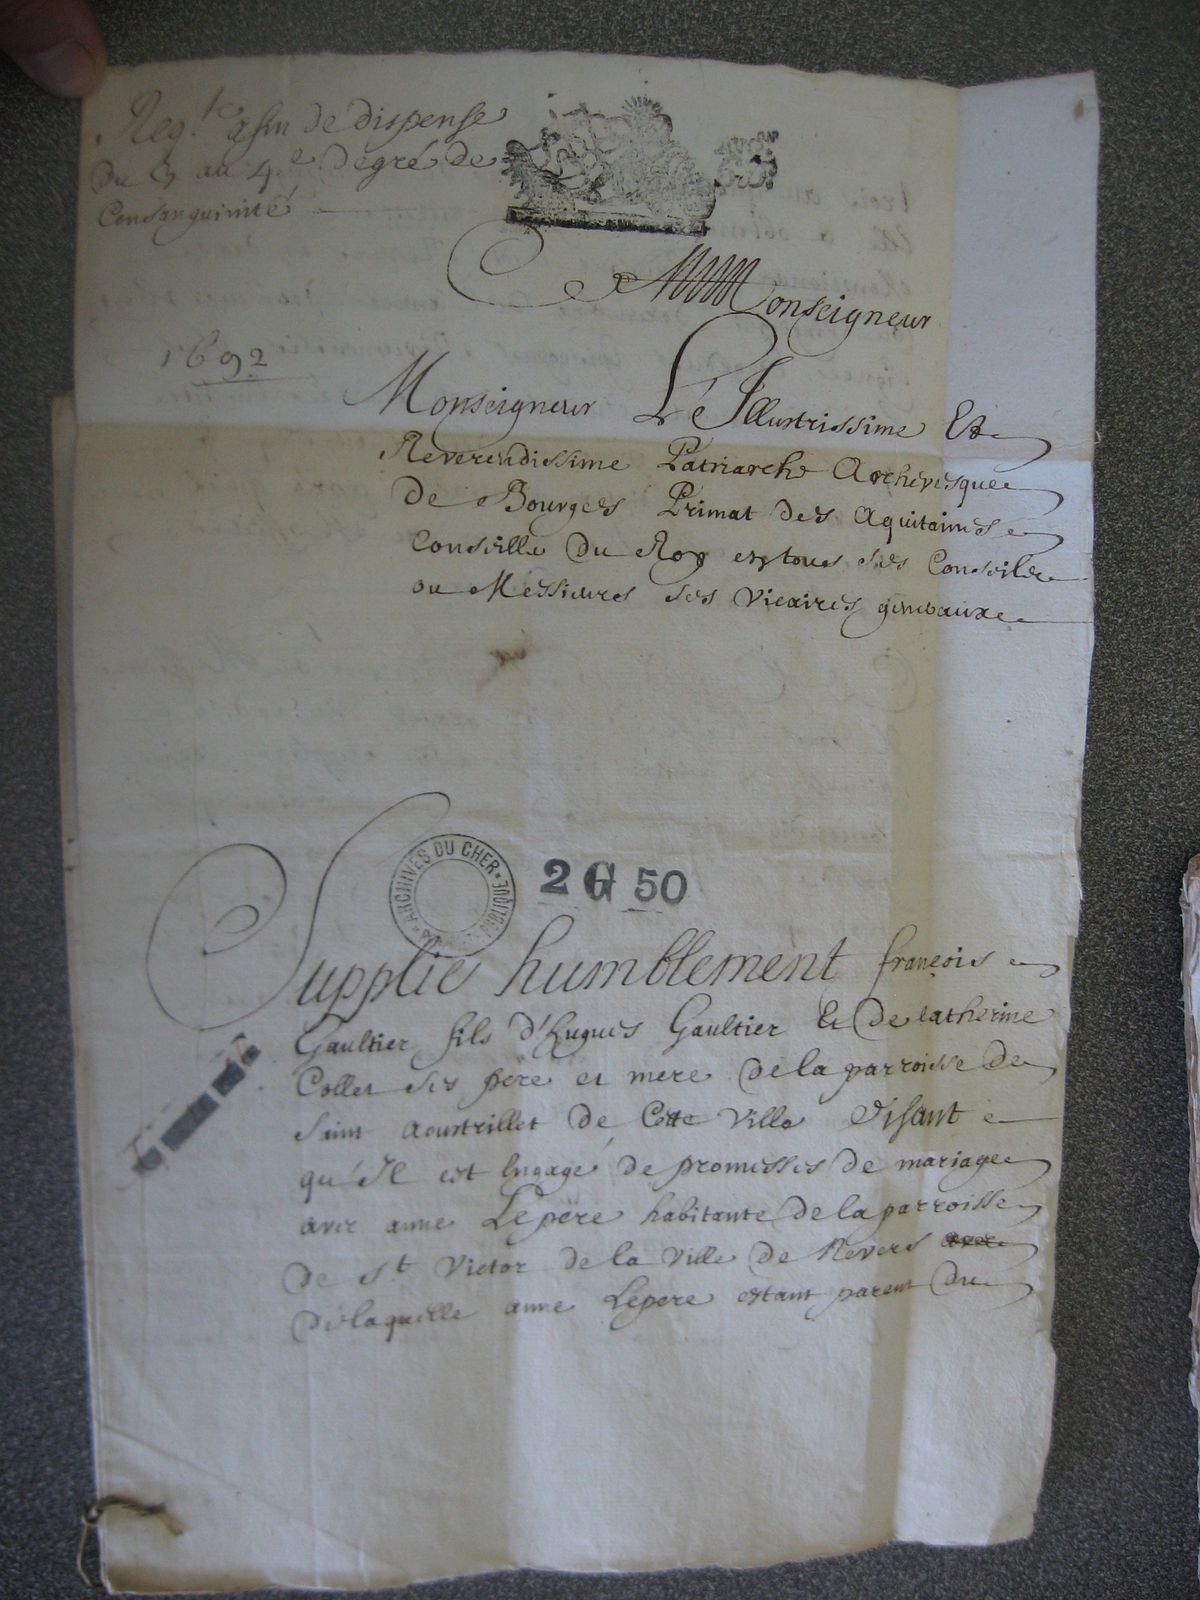 Reqte afin de dispense
Du 3 au 4e degré de
Consanguinité
A
Monseigneur
1692
Monseigneur L'Illustrissime Et
Reverendissime Patriarche Archevesque
De Bourges Primat des Aquitaines
Conseille du Roy en tous ses Conseils
ou Messieurs ses Vicaires generaux
ARCHIVES DU CHER
2 G 50
Supplie humblement françois
Gaultier fils d'hugues Gaultier Et de Catherine
Collet ses pere et mere de la parroisse de
Saint Aoustrillet de Cette Ville disant
qu'Il est Engagé de promesses de mariage
avec anne Lepere habitante de la parroisse
de st Victor de la Ville de Nevers
de laquelle anne Lepere estant parent du